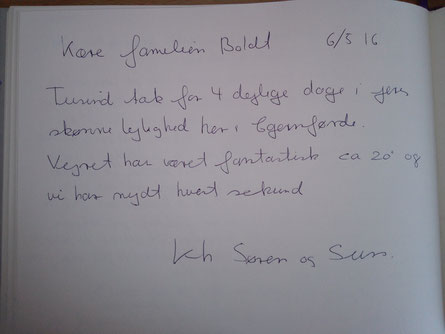 Kære familien Boldt 6/5 16
Tusind tak for 4 dejlige dage i jeres
skønne lejlighed her i Egernførde.
Vejret har været fantastisk ca 20° og
vi har nydt hvert sekund
Kh Søren og Suss.